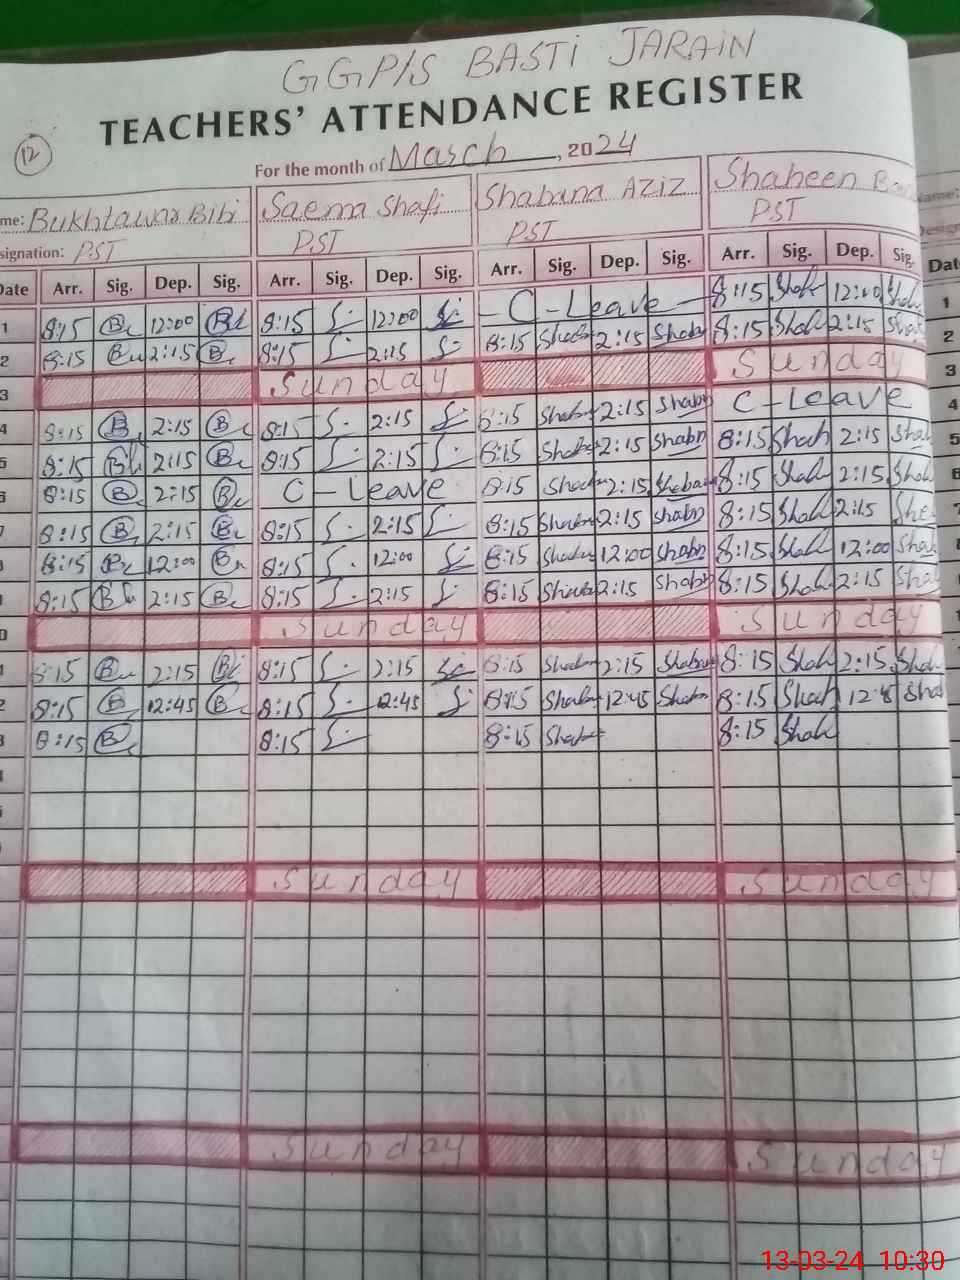 GGP/S BASTI JARAIN
TEACHERS' ATTENDANCE REGISTER
12
For the month of March, 2024
me: Bukhtawar Bibi Saema Shafi Shabana AZIZ Shaheen
signation: PST PST PST PST
Date Arr. Sig. Dep. Sig. Arr. Sig. Dep. Sig. Arr. Sig. Dep. Sig. Arr. Sig. Dep. Sig. Dat
1 8:15 12:00 8:15 12:00 C-Leave 8:15 Shah 12:00 Shah 1
2 8:15 2:15 8:15 2:15 8:15 Shab 2:15 Shab 8:15 Shah 2:15 Sha 2
3 Sunday Sunday 3
4 8:15 2:15 8:15 2:15 8:15 Shab 2:15 Shab C-Leave 4
5 8:15 2:15 8:15 2:15 8:15 Shab 2:15 Shab 8:15 Shah 2:15 Sha 5
6 8:15 2:15 C-Leave 8:15 Shab 2:15 Shaba 8:15 Shah 2:15 Shah 6
7 8:15 2:15 8:15 2:15 8:15 Shab 2:15 Shab 8:15 Shah 2:15 She 7
8:15 12:00 8:15 12:00 8:15 Shab 12:00 Shab 8:15 Shah 12:00 Sha
8:15 2:15 8:15 2:15 8:15 Shab 2:15 Shab 8:15 Shah 2:15 Sha
0 Sunday Sunday
1 8:15 2:15 8:15 2:15 8:15 Shab 2:15 Shaba 8:15 Shah 2:15 Shah
2 8:15 12:45 8:15 12:45 8:15 Shab 12:45 Shab 8:15 Shah 12:45 Shah
3 8:15 8:15 8:15 Shab 8:15 Shah
Sunday Sunday
Sunday Sunday
13-03-24 10:30